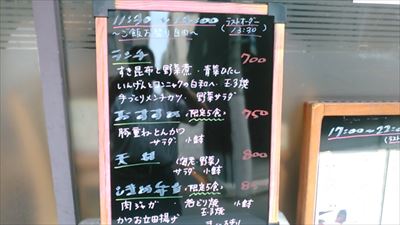 (ラストオーダー
13:30)
〜ご飯お替り自由〜
ランチ 700
すき昆布と野菜煮・青菜ひたし
いんげんとコンニャクの白和へ・玉子焼
手づくりメンチカツ・野菜サラダ
おすすめ (限定5食) 750
豚重ねとんかつ
サラダ・小鉢
天丼 (海老・野菜) 800
サラダ・小鉢
弁当 (限定5食)
肉ジャガ・若どり焼
玉子焼
かつお立田揚げ
17:00〜22: